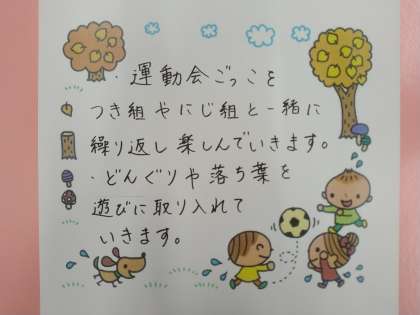 ・運動会ごっこを
つき組やにじ組と一緒に
繰り返し楽しんでいきます。
・どんぐりや落ち葉を
遊びに取り入れて
いきます。